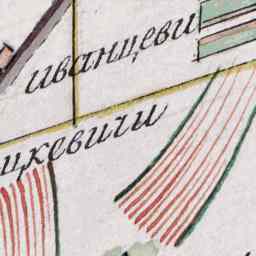 иванцеви
цкевичи